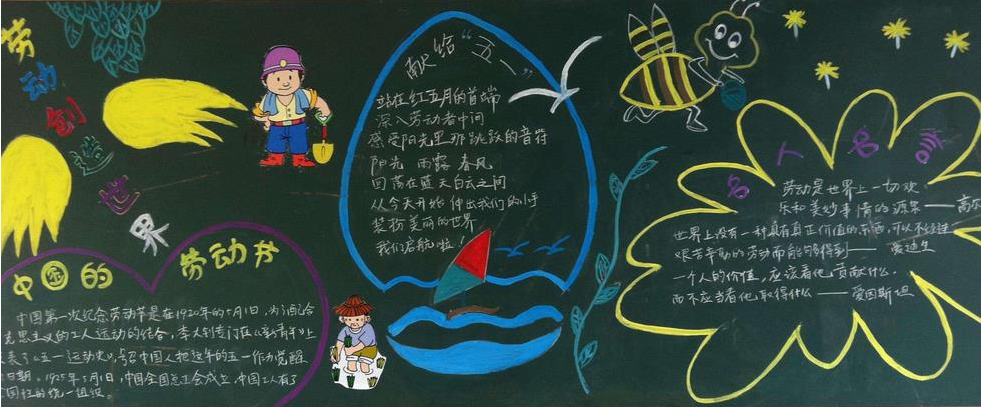 劳动创造世界
中国的 劳动节
中国第一次纪念劳动节是在1920年的5月1日,为了配合
克思主义的工人运动的结合,李大钊专门在《新青年》上
表了《五一运动史》,号召中国人把这年的五一作为觉醒
日期。1925年5月1日,中国全国总工会成立,中国工人有了
国性的统一组织。
献给“五一”
站在红五月的首端
深入劳动者中间
感受阳光里那跳跃的音符
阳光 雨露 春风
回荡在蓝天白云之间
从今天开始 伸出我们的小手
装扮美丽的世界
我们启航啦!
名人名言
劳动是世界上一切欢
乐和美妙事情的源泉——高尔
世界上没有一种具有真正价值的东西,可以不经过
艰苦辛勤的劳动而能够得到——爱迪生
一个人的价值,应该看他贡献什么,
而不应当看他取得什么——爱因斯坦